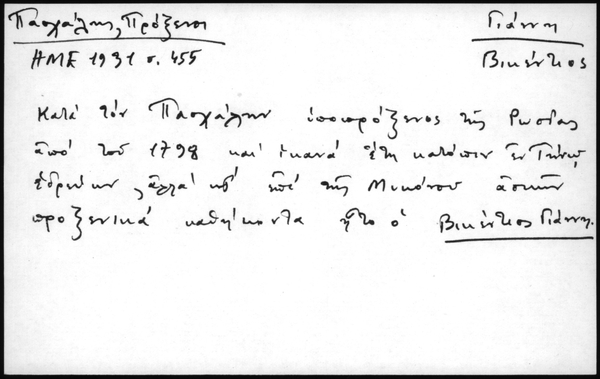 Πασχάλης, Πρόξενοι
ΗΜΕ 1931 σ. 455
Γιάννη
Βικέντιος
Κατά τόν Πασχάλην ὑποπρόξενος τῆς Ρωσίας
ἀπό τοῦ 1798 καί ἱκανά ἔτη κατόπιν ἐν Τήνῳ
ἑδρεύων, ἀλλά κ' ἐπί τῆς Μυκόνου ἀσκῶν
προξενικά καθήκοντα ἦτο ὁ Βικέντιος Γιάννη.